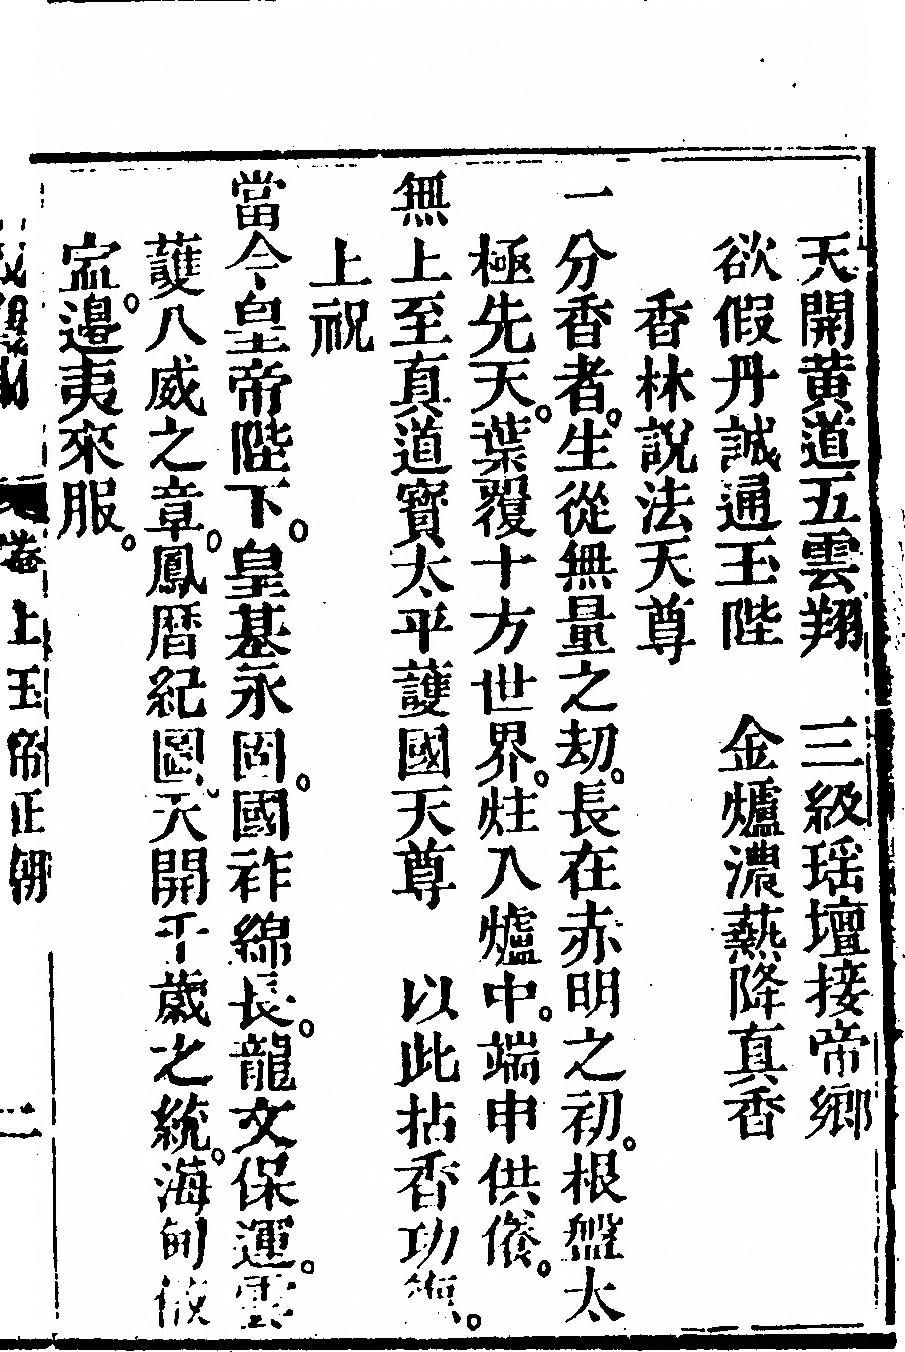 天開黄道五雲翔　三級瑶壇接帝鄉
欲假丹誠通玉陛　金爐濃爇降真香
香林說法天尊
一分香者。生從無量之刼。長在赤明之初。根盤太
極先天。葉覆十方世界。炷入爐中。端申供養。
無上至真道寳太平護國天尊　以此拈香功德。
上祝
當今皇帝陛下。皇基永固。國祚綿長。龍文保運。雲
護八威之章。鳳曆紀圖、天開千歲之統。海甸
寍。邉夷來服。
卷上玉帝正朝
二